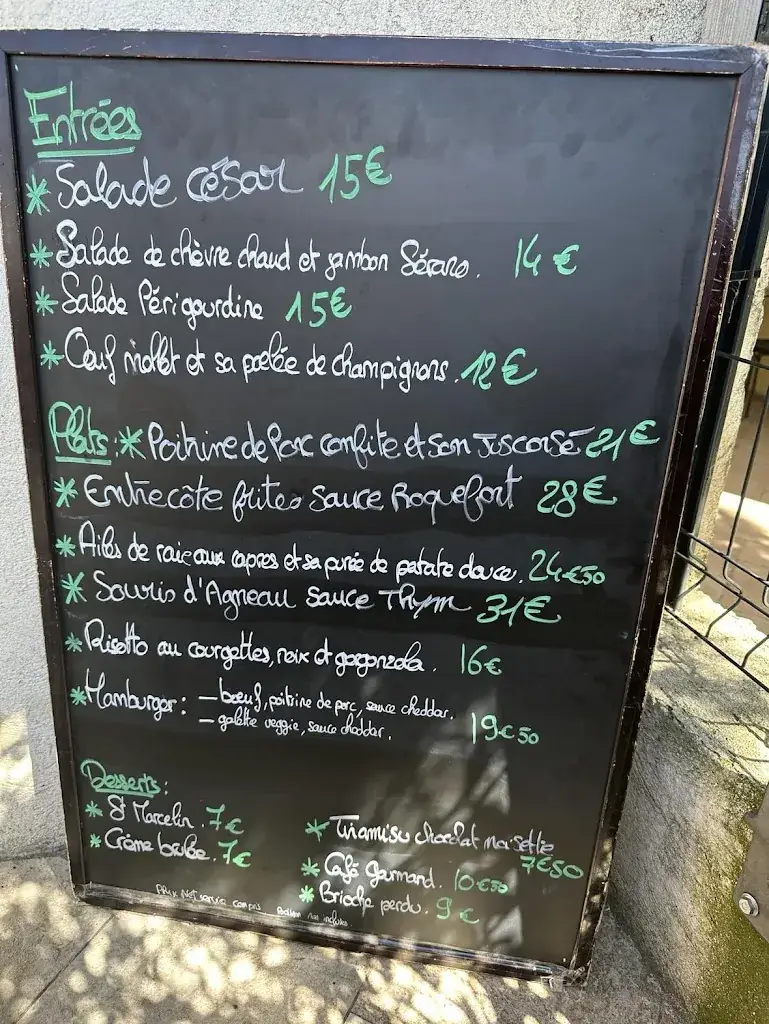 Entrées
* Salade César 15€
* Salade de chèvre chaud et jambon Sérano. 14€
* Salade Périgourdine 15€
* Oeuf mollet et sa poêlée de champignons. 12€
Plats: * Poitrine de Porc confite et son jus corsé 21€
* Entrecôte frites sauce Roquefort 28€
* Ailes de raie aux capres et sa purée de patate douce. 24€50
* Souris d'Agneau sauce Thym 31€
* Risotto au courgettes, noix et gorgonzola. 16€
* Hamburger: – boeuf, poitrine de porc, sauce cheddar.
– galette veggie, sauce cheddar. 19€50
Desserts:
* St Marcelin. 7€
* Crème brulée. 7€
* Tiramisu chocolat noisette
7€50
* Café gourmand. 10€50
* Brioche perdu. 9€
Prix Net service compris